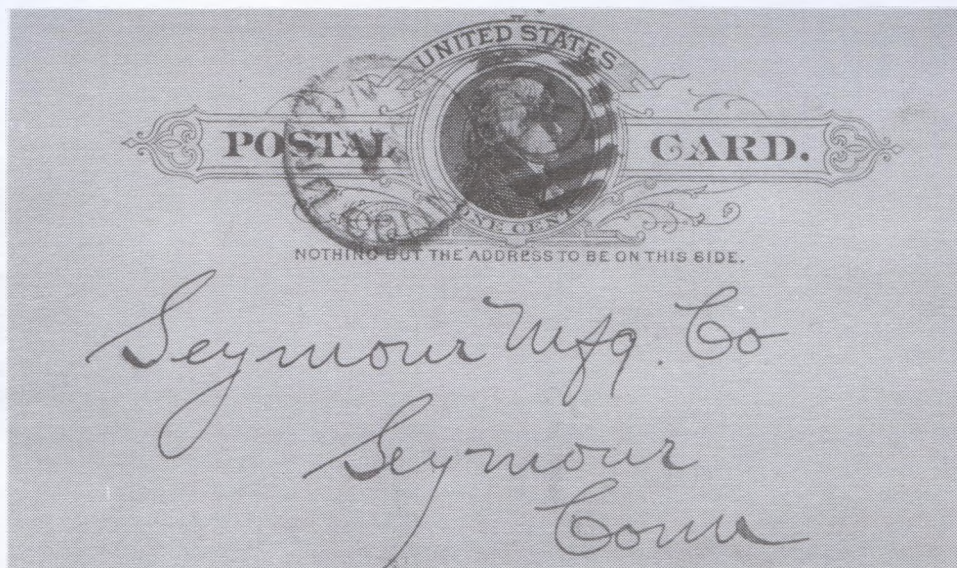 UNITED STATES
POSTAL CARD.
ONE CENT
NOTHING BUT THE ADDRESS TO BE ON THIS SIDE.
Seymour Mfg. Co
Seymour
Conn